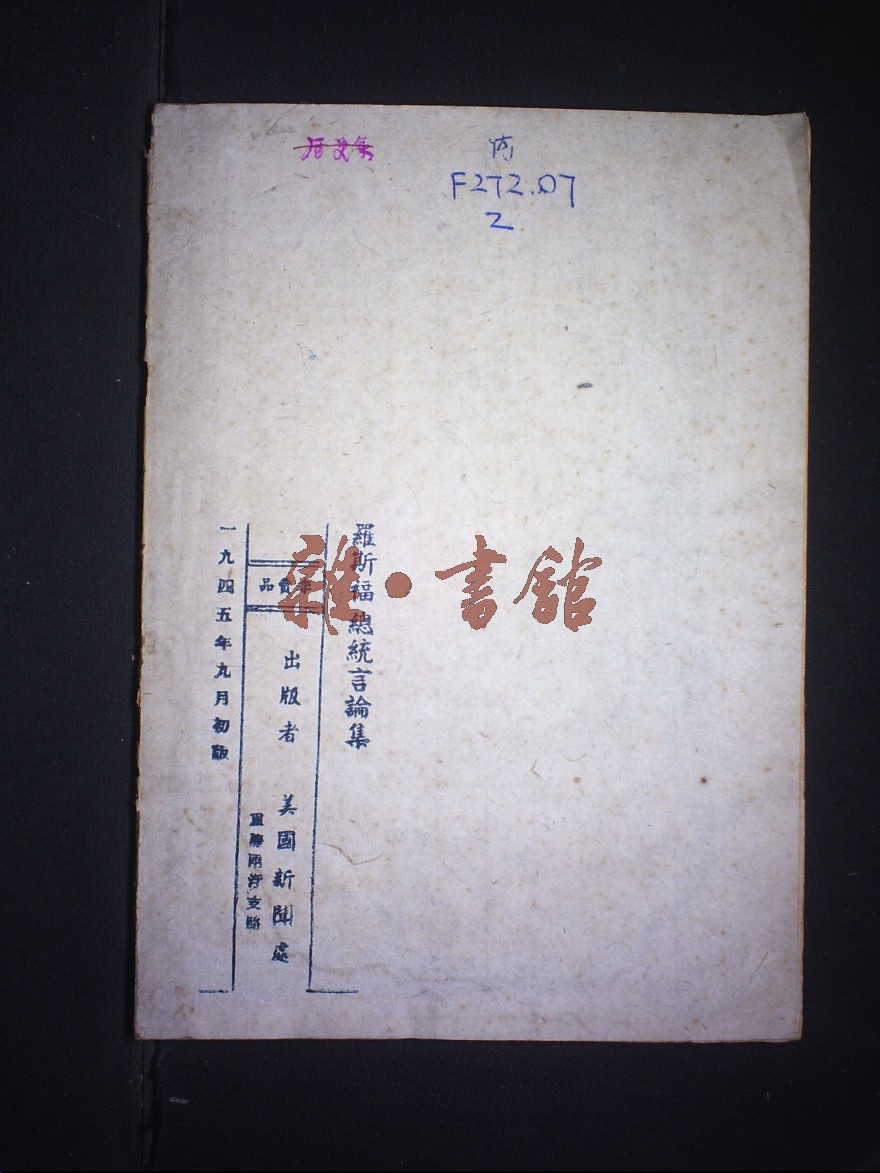 内
F272.07
2
雜·書館
羅斯福總統言論集
非賣品
出版者 美國新聞處
重慶兩浮支路
一九四五年九月初版